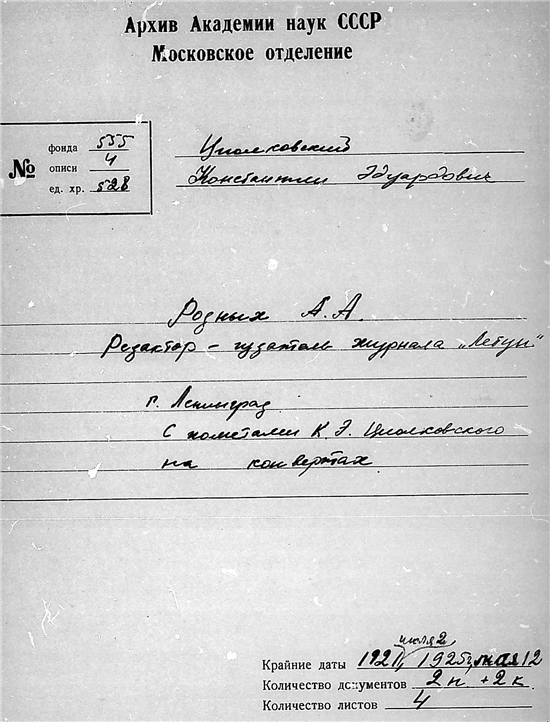 Архив Академии наук СССР
Московское отделение
№
фонда 555
описи 4
ед. хр. 528
Циолковский
Константин Эдуардович
Родных А.А.
Редактор – издатель журнала „Летун“
г. Ленинград
С пометами К.Э. Циолковского
на конвертах
июля 2
Крайние даты 1921, 1925, мая 12
Количество документов 2п + 2к.
Количество листов 4